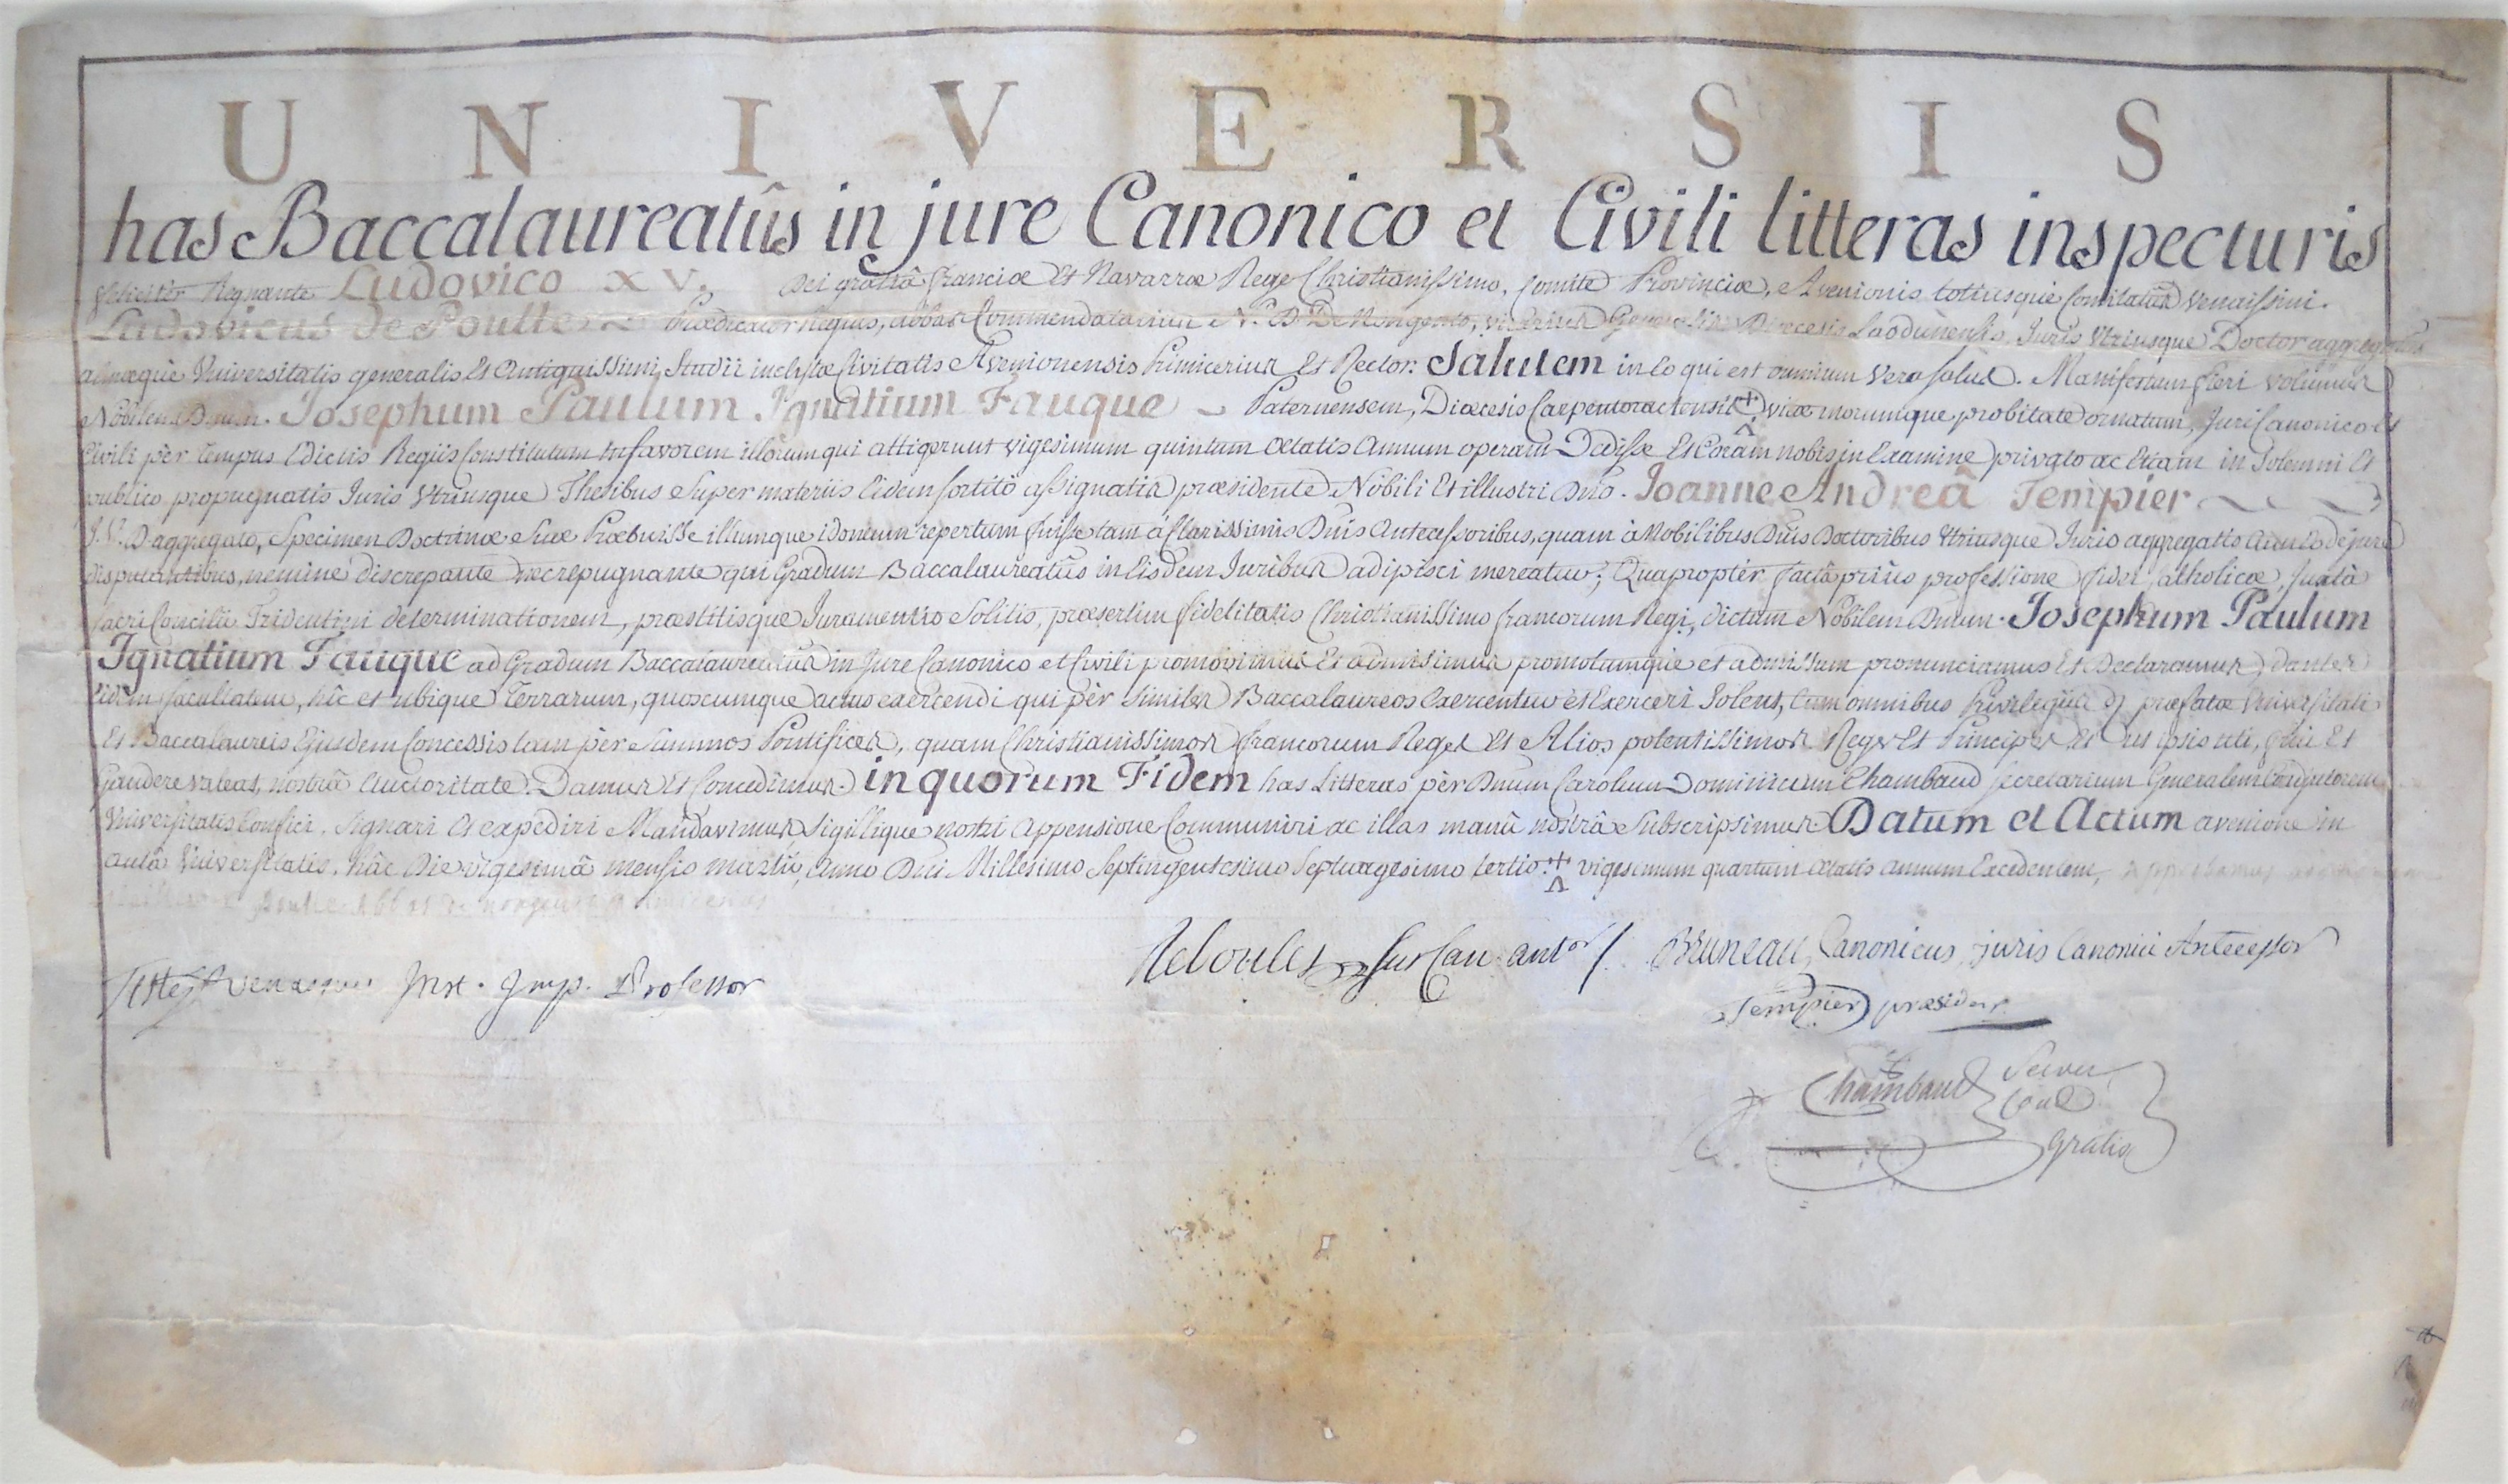 UNIVERSIS
has Baccalaureatûs in jure Canonico et Civili litteras inspecturis
feliciter Regnante Ludovico XV. Dei gratiâ franciæ Et Navarræ Rege Christianissimo, Comite Provinciæ, Avenionis totiusque Comitatûs Venaissini.
Ludovicus de Poulle Prædicator Regius, abbas Commendatarius N. D. De Nongento, vicarius Generalis Diœcesis Laodunensis, Juris Utriusque Doctor aggregatus
almæque Universitatis generalis Et Antiquissimi Studii inclytæ Civitatis Avenionensis Primicerius Et Rector: Salutem in eo qui est omnium vera salus. Manifestum fieri volumus
Nobilem Dnum. Josephum Paulum Ignatium Fauque Paternensem, Diœcesis Carpentoractensis + vitæ morumque probitate ornatum, Juri Canonico Et
Civili pèr tempus Edictis Regiis Constitutum In favorem illorum qui attigerunt vigesimum quintum ætatis Annum operam Dedisse Et Coram nobis in Examine privato ac Etiam in Solemni Et
publico propugnatis Juris Utriusque Thesibus Super materiis Eidem sortitò assignatis præsidente Nobili Et illustri Dno. Joanne Andreâ Tempier
J. V. D. aggregato, Specimen Doctrinæ Suæ Præbuisse illumque idoneum repertum fuisse tam à Clarissimis Dnis Antecessoribus, quam à Nobilibus Dnis Doctoribus Utriusque Juris aggregatis de jure
disputantibus, nemine discrepante nec repugnante qui Gradum Baccalaureatûs in Eisdem Juribus adipisci mereatur; Quapropter factâ priùs professione fidei Catholicæ, Juxtà
sacri Concilii Tridentini determinationem, præstitisque Juramentis Solitis, præsertim fidelitatis Christianissimo francorum Regi, dictum Nobilem Dnum. Josephum Paulum
Ignatium Fauque ad Gradum Baccalaureatûs in Jure Canonico et Civili promovimus Et admisimus promotumque et admissum pronunciamus Et Declaramus, dantes
Eidem facultatem, hîc et ubique terrarum, quoscumque actus exercendi qui pèr similes Baccalaureos Exercentur et Exerceri Solent, Cum omnibus Privilegiis præfatæ Universitati
Et Baccalaureis Ejusdem Concessis tam pèr Summos Pontifices, quam Christianissimos francorum Reges Et Alios potentissimos Reges Et Principes Et ut ipsis uti, frui Et
Gaudere valeat, nostrâ Auctoritate Damus Et Concedimus. in quorum Fidem has Litteras pèr Dnum Carolum Dominicum Chambaud secretarium Generalem Coadjutorem
Universitatis Confici, Signari Et expediri Mandavimus, Sigillique nostri Appensione Communiri ac illas manû nostrâ Subscripsimus. Datum et Actum avenione in
aulâ Universitatis, hâc Die vigesimâ mensis martii, anno Dni Millesimo Septingentesimo Septuagesimo tertio. + vigesimum quartum ætatis annum Excedentem,
Reboulet Canonicus
Bruneau, Canonicus, juris Canonici Antecessor
Teste Inst. Imp. Professor
Tempier præses
Chambaud Secret.
Coad.
Gratis